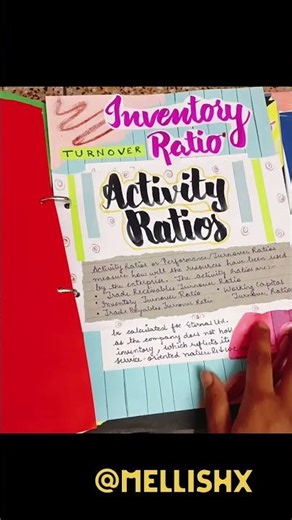 Inventory
TURNOVER Ratio
Activity
Ratios
Activity Ratios or Performance/Turnover Ratios
measure how well the resources have been used
by the enterprise. The Activity Ratios are:-
• Trade Receivables Turnover Ratio
• Inventory Turnover Ratio • Working Capital
• Trade Payables Turnover Ratio Turnover Ratio
be calculated for Eternal Ltd.
as the company does not hold
inventory, which reflects its
service-oriented nature
@MELLISHX